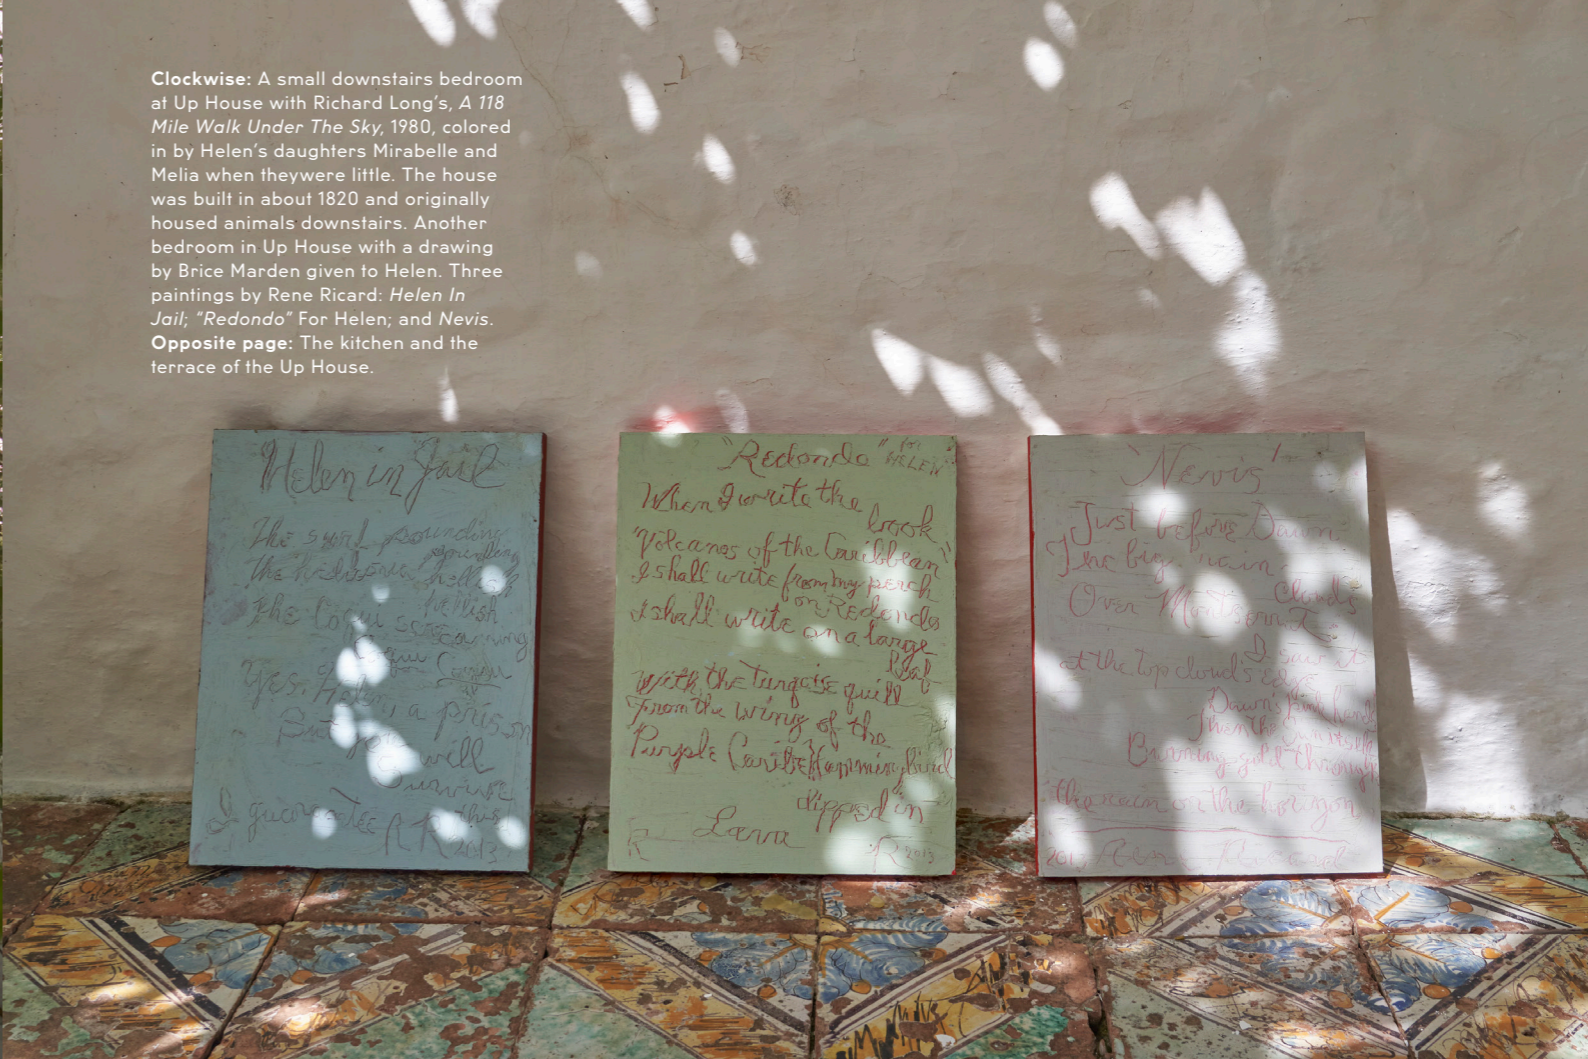 Clockwise: A small downstairs bedroom
at Up House with Richard Long's, A 118
Mile Walk Under The Sky, 1980, colored
in by Helen's daughters Mirabelle and
Melia when theywere little. The house
was built in about 1820 and originally
housed animals downstairs. Another
bedroom in Up House with a drawing
by Brice Marden given to Helen. Three
paintings by Rene Ricard: Helen In
Jail; "Redondo" For Helen; and Nevis.
Opposite page: The kitchen and the
terrace of the Up House.
Helen in Jail
The surf pounding
pounding
the hellish
The Coqui screaming
Coqui
Yes. Helen, a prison
But you will
Survive
I guarantee this
RR 2013
"Redondo" for
HELEN
When I write the
book
"Volcanos of the Caribbean"
I shall write from my perch
on Redondo
I shall write on a large
leaf
With the Turqoise quill
From the wing of the
Purple Caribe Hamming bird
dipped in
Lava
R R 2013
'Nevis'
Just before Dawn
The big rain
Clouds
Over Montserrat
I saw it
at the top cloud's edge
Dawn's Pink hand
Then the Sun itself
Burning gold through
the rain on the horizon
2013 Rene Ricard